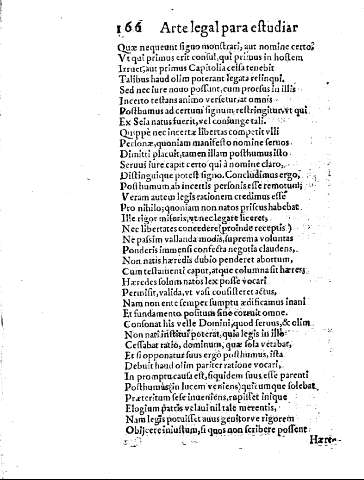 166 Arte legal para estudiar
Quæ nequeunt signo monstrari, aut nomine certo,
Vt qui primus erit consul, qui primus in hostem
Irruet, aut primus Capitolia celsa tenebit
Talibus haud olim poterant legata relinqui.
Sed nec iure nouo possunt, cum prorsus in illis
Incerto testans animo versetur, at omnis
Posthumus ad certum signum restringitur, vt qui
Ex Seia natus fuerit, vel coniuge tali.
Quippè nec incertæ libertas competit vlli
Personæ, quoniam manifesto nomine seruos
Dimitti placuit, tamen illam posthumus isto
Seruus iure capit certo qui à nomine claro,
Distinguique potest signo. Concludimus ergo,
Posthumum ab incertis personis esse remotum;
Veram autem legis rationem credimus esse
Pro nihilo; quoniam non natos priscus habebat
Ille rigor miseris, vt nec legare liceret,
Nec libertates concedere (proinde receptis)
Ne passim vallanda modis, suprema voluntas
Ponderis immensi confecta negotia claudens,
Non natis hæredis dubio penderet abortum,
Cum testamenti caput, atque columna sit hæres;
Hæredes solum natos lex posse vocari
Permisit, valida, vt vasi consisteret actus,
Nam non ente semper sumptu ædificamus inani
Et fundamento positum sine corruit omne.
Consonat his velle Domini, quod seruus, & olim
Non nati institui poterat, quia legis in illo
Cessabat ratio, dominum, quæ sola vetabat,
Et si opponatur suus ergò posthumus, ista
Debuit haud olim pariter ratione vocari,
In promptu causa est, siquidem suus esse parenti
Posthumus (in lucem veniens) quicumque solebat
Præteritum sese inueniens, rapuisset inique
Elogium patris velaui nil tale merentis,
Nam legis potuisset auus genitorve rigorem
Obijcere iniustum, si quos non scribere possent
Hære-